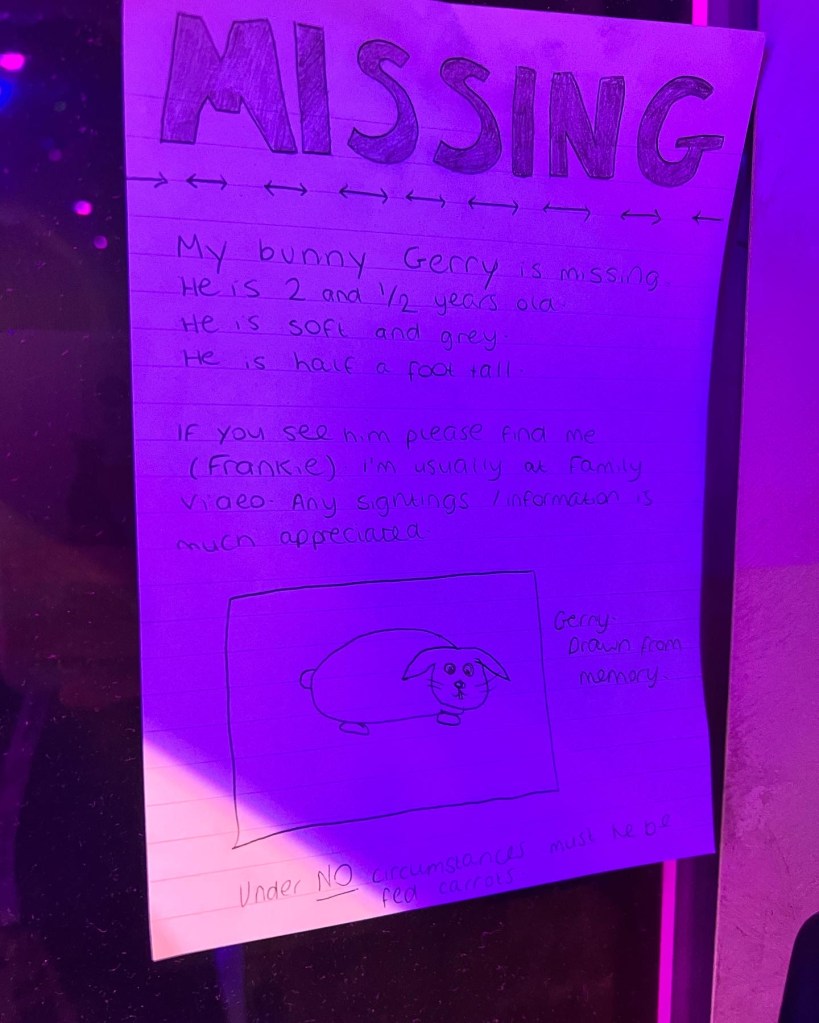 MISSING
My bunny Gerry is missing.
He is 2 and 1/2 years old.
He is soft and grey.
He is half a foot tall.
If you see him please find me
(Frankie) I'm usually at Family
Video. Any sightings / information is
much appreciated.
Gerry.
Drawn from
memory.
Under NO circumstances must he be
fed carrots